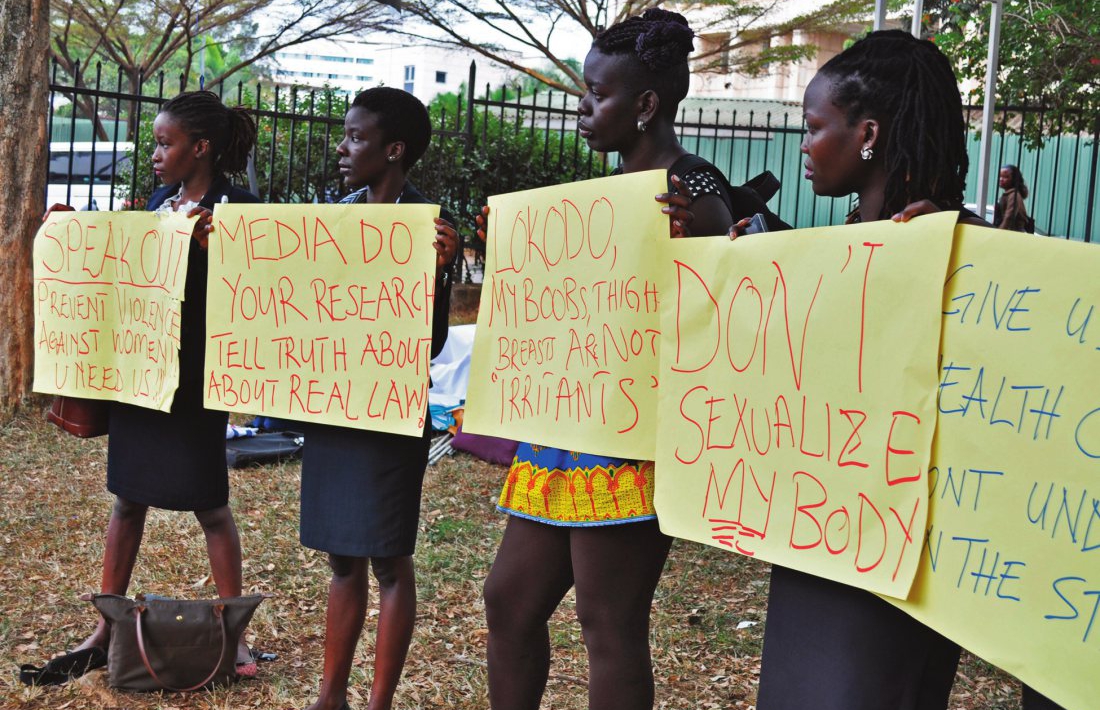 SPEAK OUT
PREVENT VIOLENCE
AGAINST WOMEN
U NEED US!!!
MEDIA DO
YOUR RESEARCH
TELL TRUTH ABOUT
ABOUT REAL LAW!
LOKODO,
MY BOOBS, THIGH
BREASTS ARE NOT
"IRRITANTS"
DON'T
SEXUALIZE
MY BODY
GIVE
HEALTH
IN THE